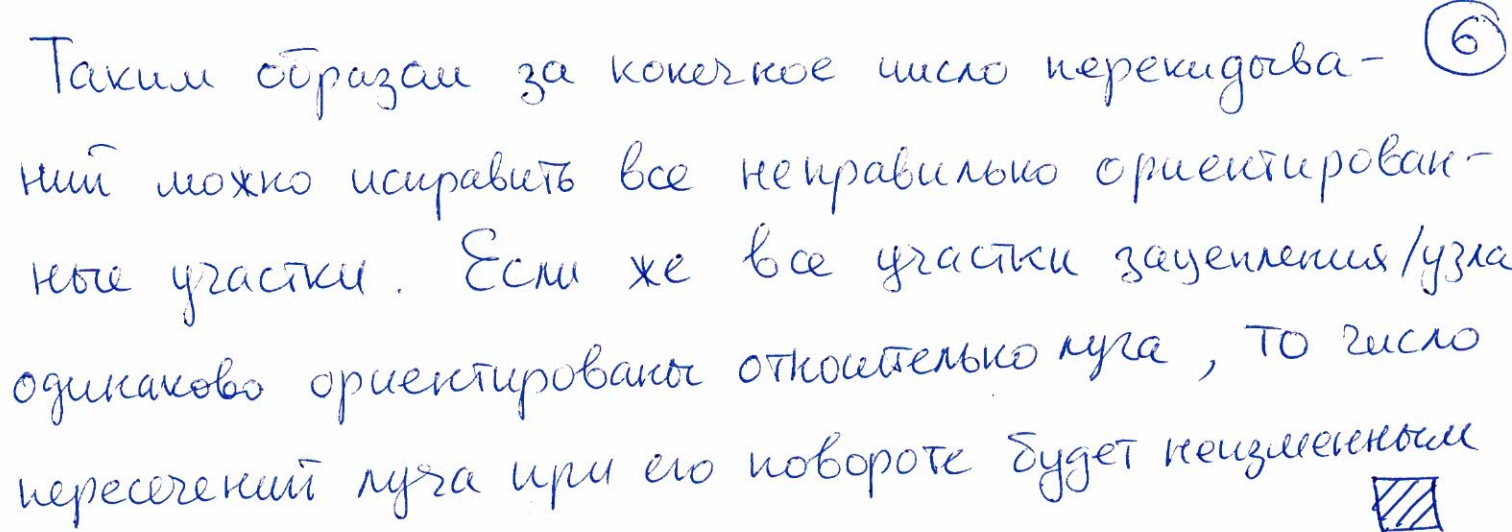 Таким образом за конечное число перекидыва- 6
ний можно исправить все неправильно ориентирован-
ные участки. Если же все участки зацепления/узла
одинаково ориентированы относительно луча, то число
пересечений луча при его повороте будет неизменным